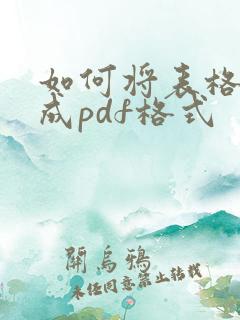 如何将表格
成pdf格式
開烏鴉
未经同意禁止转载